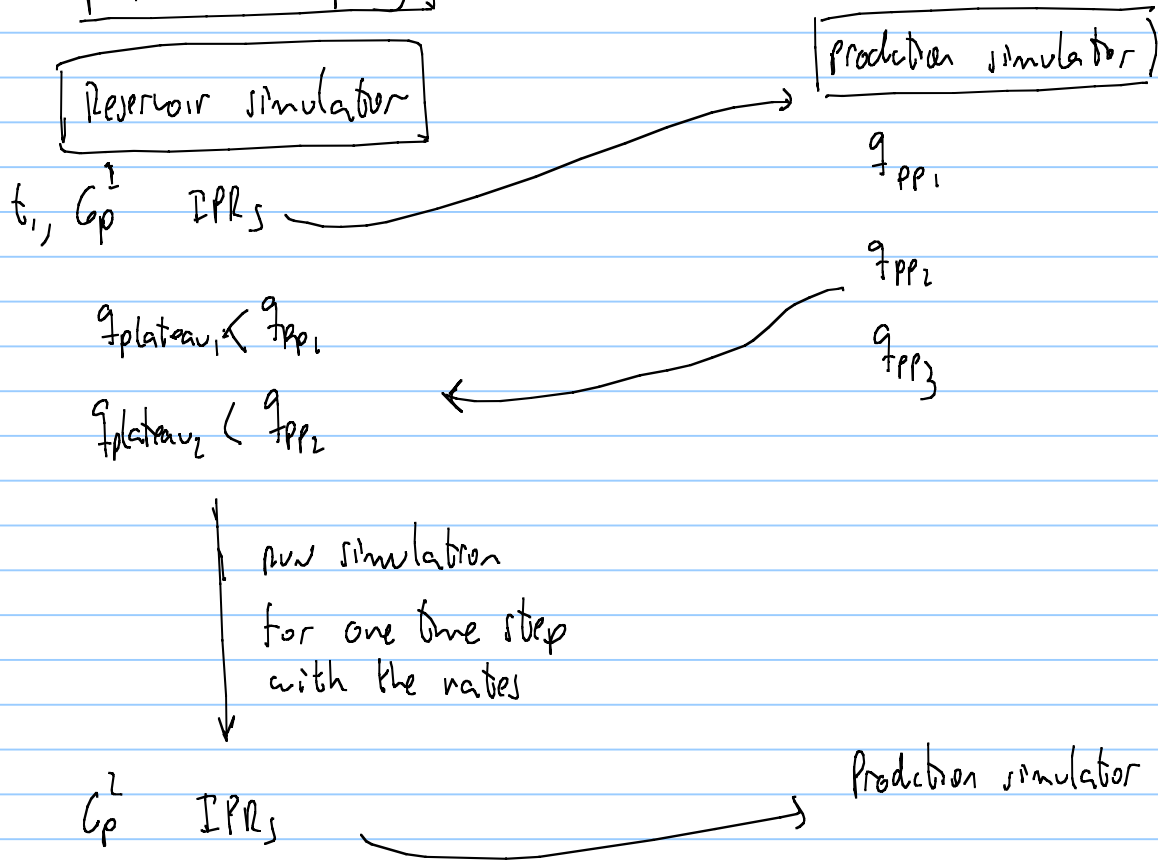 Reservoir simulator
Production simulator
t₁, Gp¹ IPRs
qpp₁
qpp₂
qpp₃
qplateau₁ < qpp₁
qplateau₂ < qpp₂
run simulation
for one time step
with the rates
Gp² IPRs
Prodction simulator